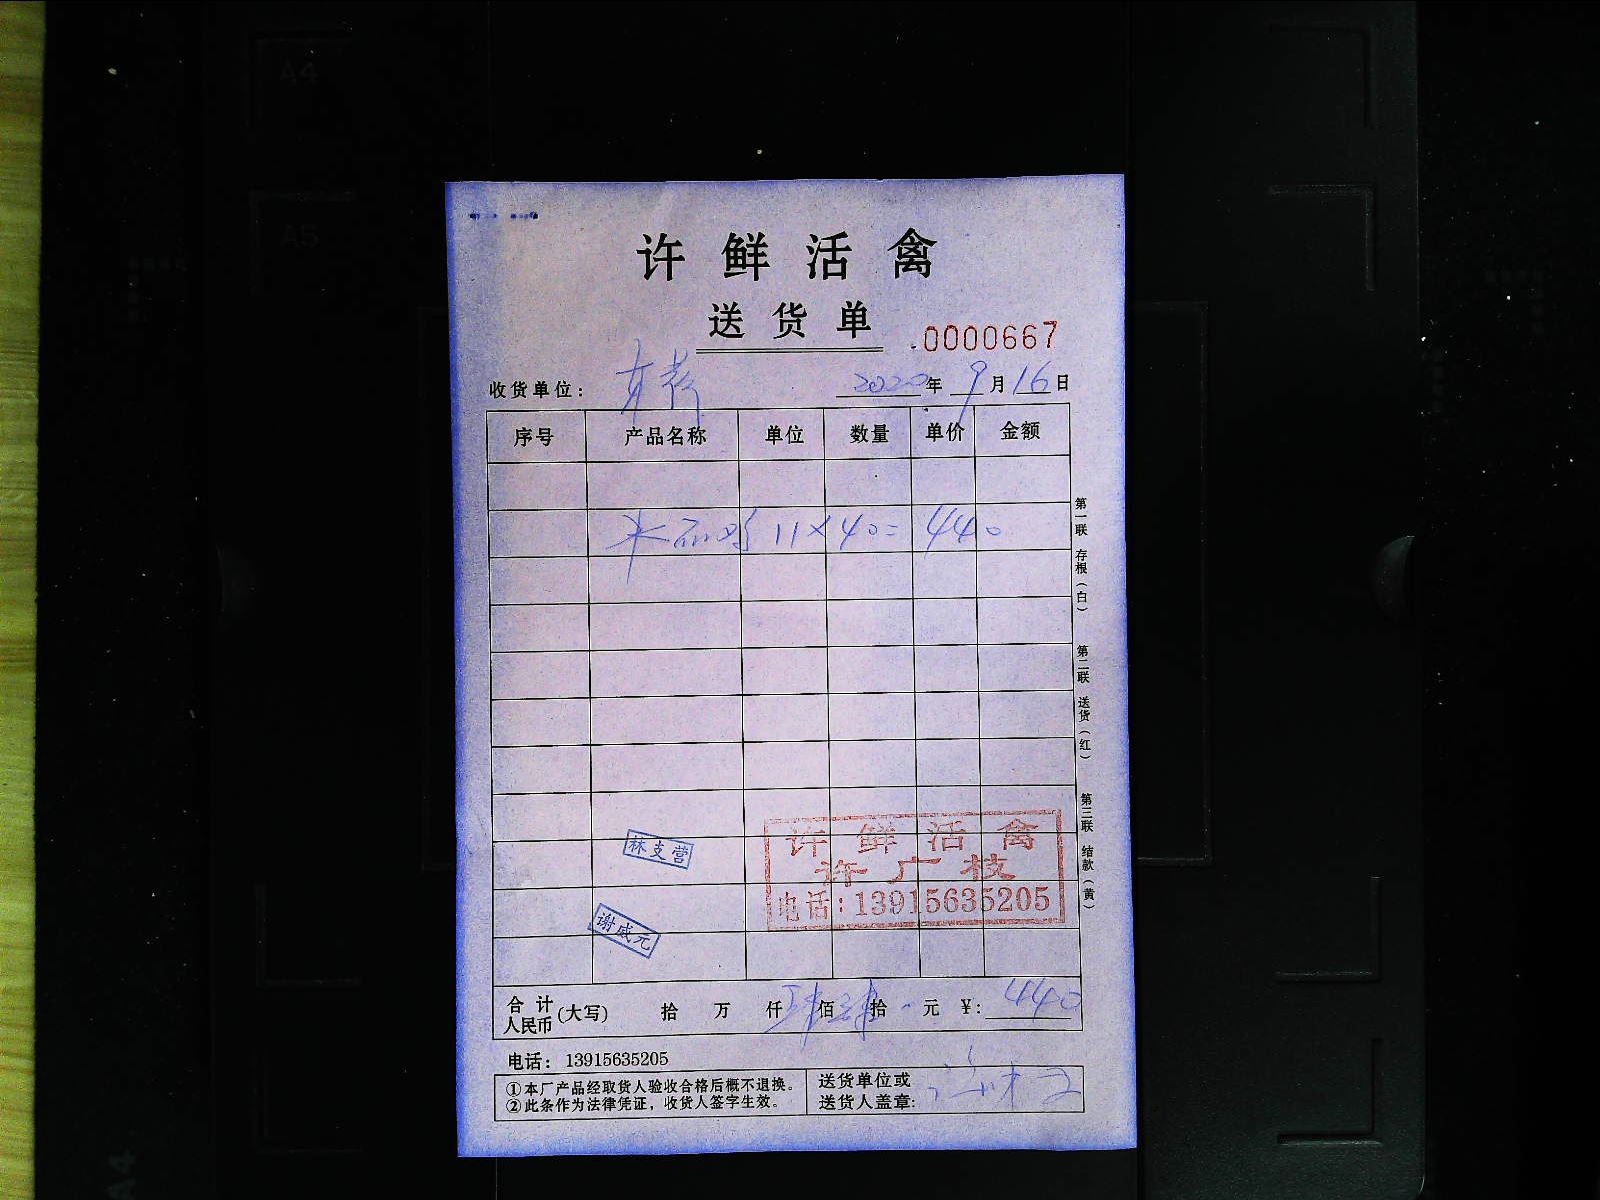 许鲜活禽
送货单
.0000667
收货单位: 2020年 9月16日
序号 产品名称 单位 数量 单价 金额
11×40= 440
第一联 存根(白)
第二联 送货(红)
第三联 结款(黄)
林支营
谢威元
许鲜活禽
许广枝
电话:13915635205
合计人民币(大写) 拾 万 仟 佰 拾 元 ¥: 440
电话: 13915635205
①本厂产品经取货人验收合格后概不退换。
②此条作为法律凭证, 收货人签字生效。
送货单位或
送货人盖章:
A4
A5
A4